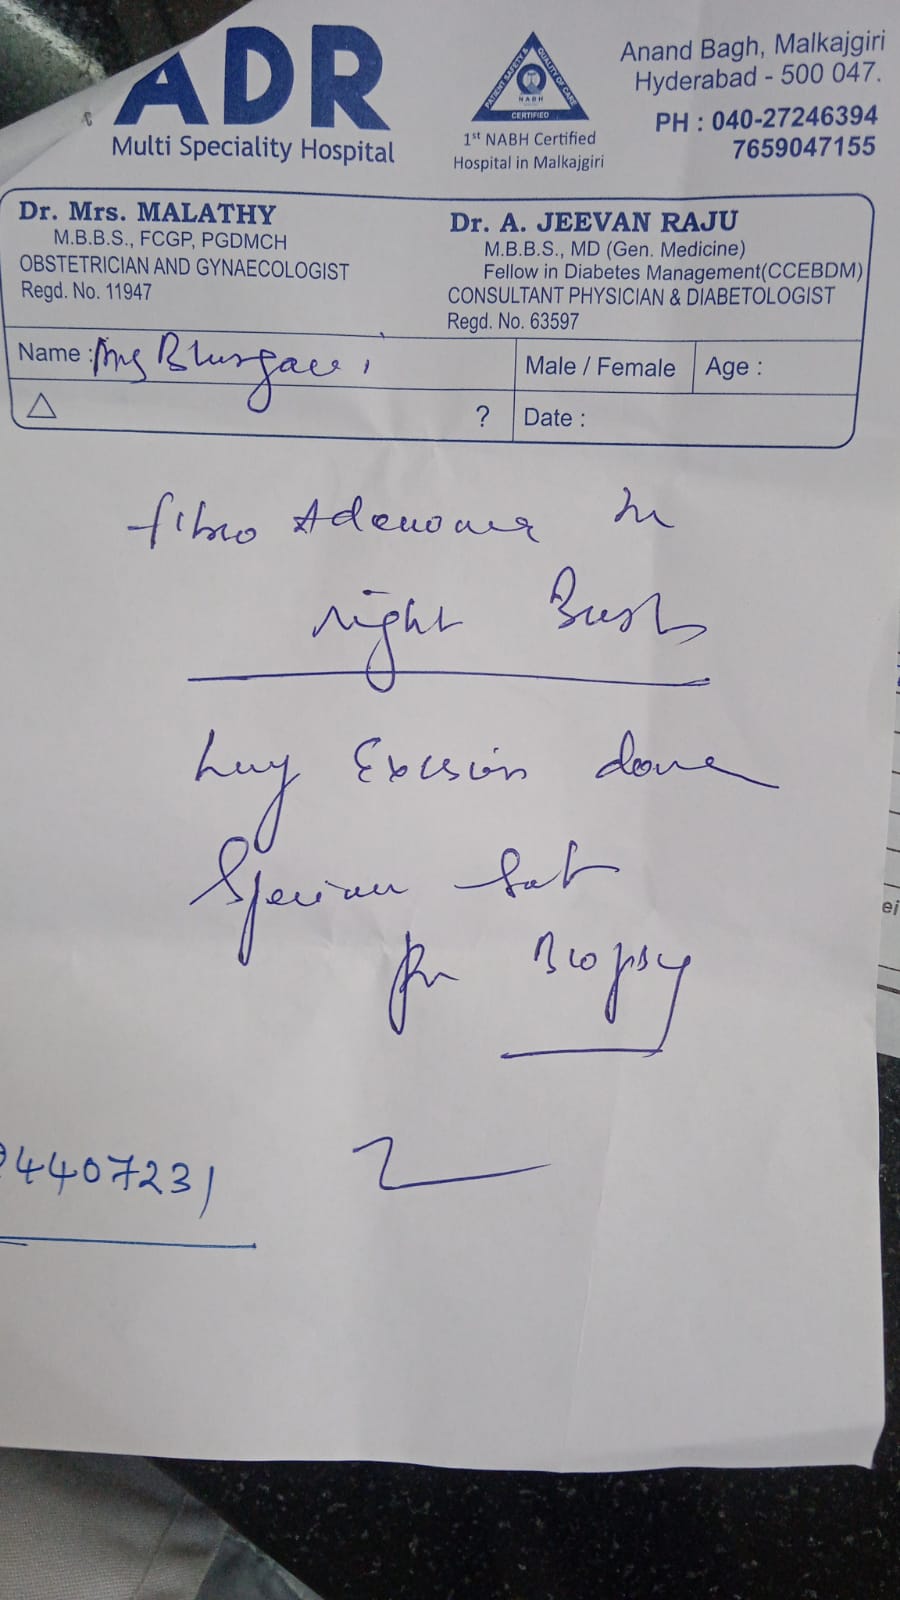 ADR
Multi Speciality Hospital
PATIENT SAFETY & QUALITY OF CARE
NABH
CERTIFIED
1st NABH Certified
Hospital in Malkajgiri
Anand Bagh, Malkajgiri
Hyderabad - 500 047.
PH : 040-27246394
7659047155
Dr. Mrs. MALATHY
M.B.B.S., FCGP, PGDMCH
OBSTETRICIAN AND GYNAECOLOGIST
Regd. No. 11947
Dr. A. JEEVAN RAJU
M.B.B.S., MD (Gen. Medicine)
Fellow in Diabetes Management(CCEBDM)
CONSULTANT PHYSICIAN & DIABETOLOGIST
Regd. No. 63597
Name :
Male / Female
Age :
△
?
Date :
fibro Adenoma in
right Breast
Excision done
Specimen Sent
for Biopsy
4407231